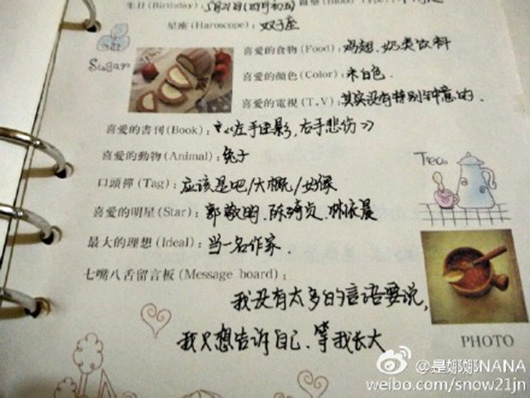 生日(Birthday): 5月21日
(Blood Type):
星座(Haroscope): 双子座
喜爱的食物(Food): 鸡翅、奶类饮料
Sugar
喜爱的顏色(Color): 米白色.
喜爱的電視(T.V): 其实没有特别钟意的.
喜爱的書刊(Book): 《左手倒影,右手悲伤》
喜爱的動物(Animal): 兔子
Tea
口頭禪(Tag): 应该是吧/大概/好像
喜爱的明星(Star): 郭敬明、陈绮贞、林依晨
最大的理想(Ideal): 当一名作家.
七嘴八舌留言板(Message board):
我没有太多的言语要说,
我只想告诉自己、等我长大
PHOTO
@是娜娜NANA
weibo.com/snow21jn